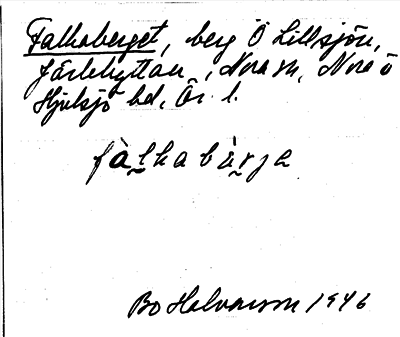 Falkaberget, berg Ö Lillsjön,
Järlehyttan, Nora sn, Nora o
Hjulsjö bd, Ör. l.
fàlkabàrja
Bo Halvarson 1946